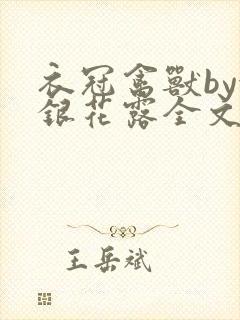 衣冠禽獸by
銀花露全文
王岳斌